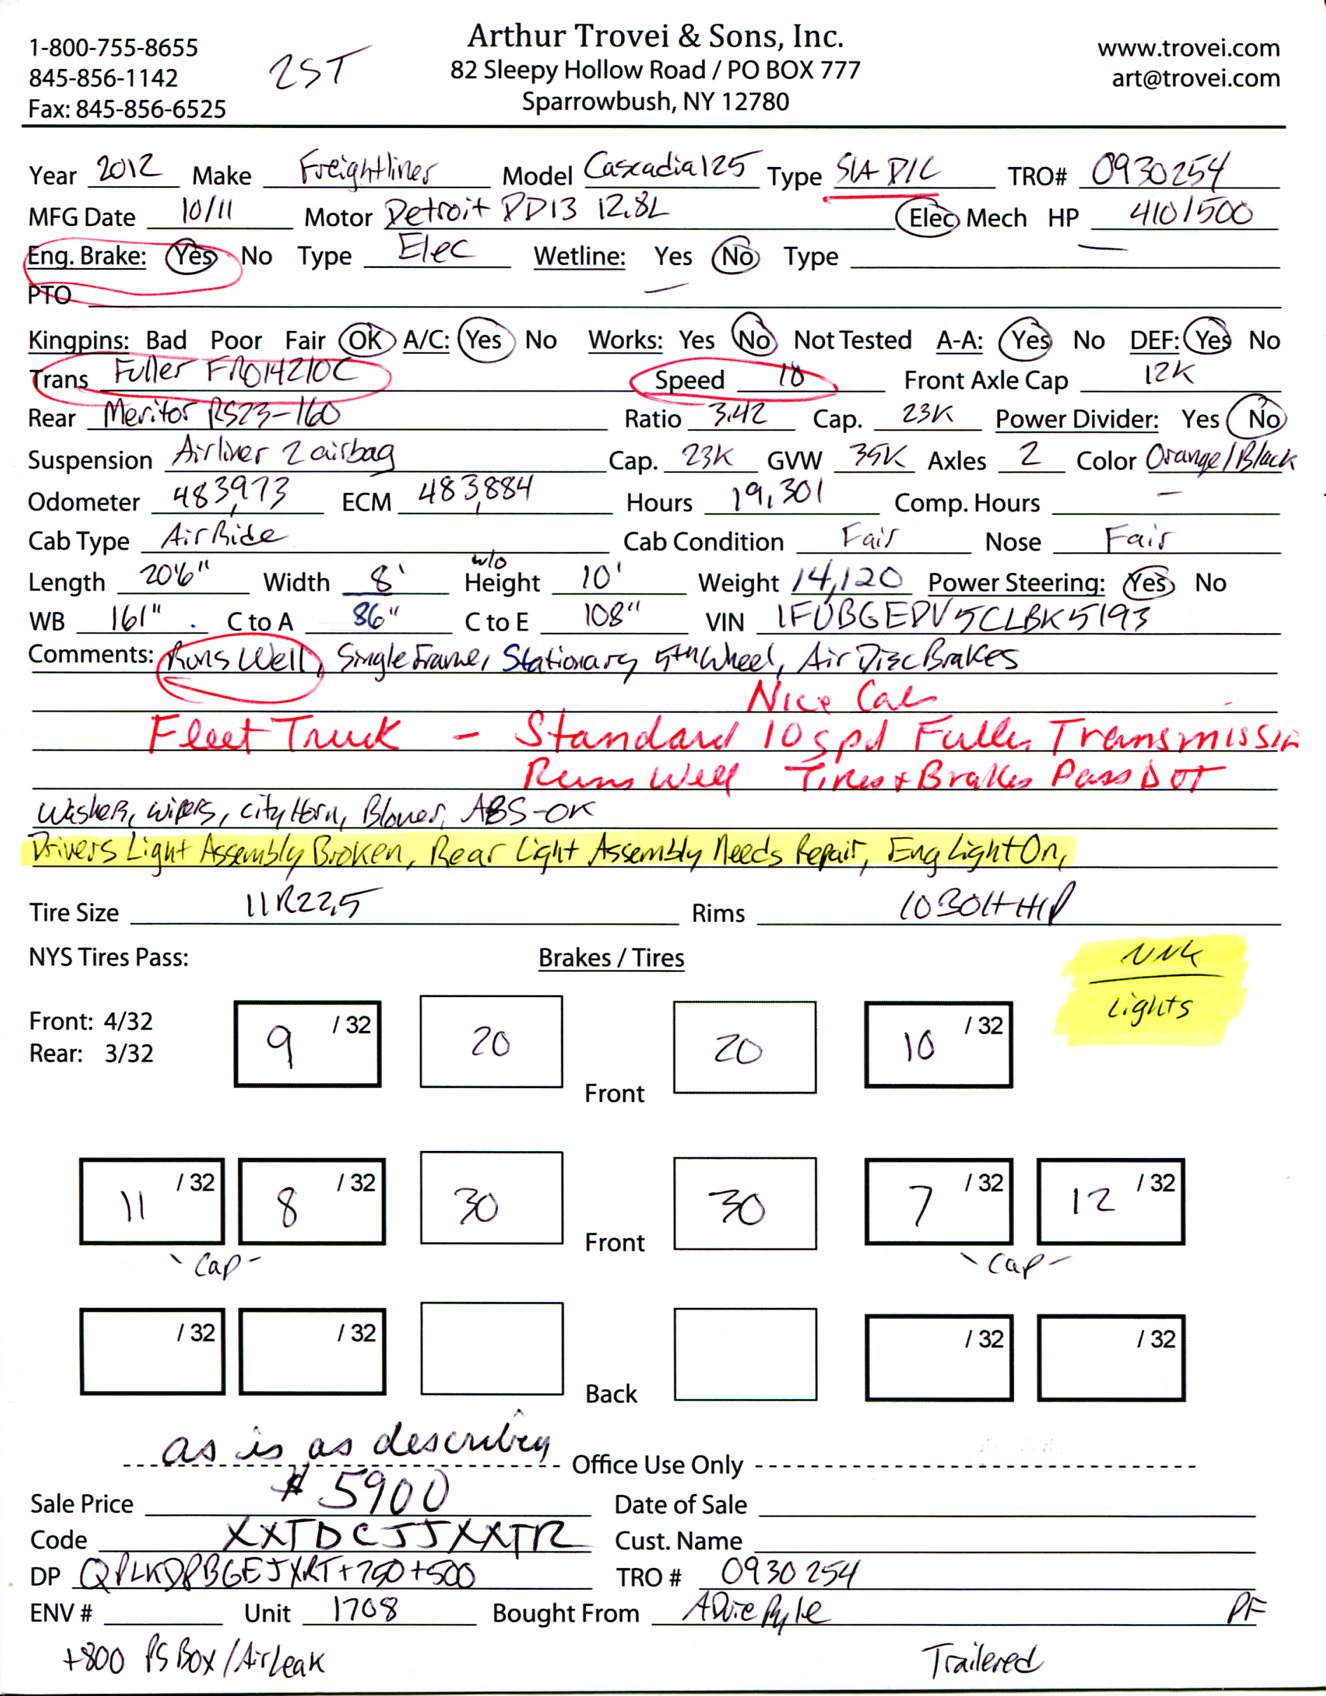 1-800-755-8655
845-856-1142
Fax: 845-856-6525
2ST
Arthur Trovei & Sons, Inc.
82 Sleepy Hollow Road / PO BOX 777
Sparrowbush, NY 12780
www.trovei.com
art@trovei.com
Year 2012 Make Freightliner Model Cascadia125 Type S/A D/C TRO# 0930254
MFG Date 10/11 Motor Detroit DD13 12.8L Elec Mech HP 410/500
Eng. Brake: Yes No Type Elec Wetline: Yes No Type
PTO
Kingpins: Bad Poor Fair OK A/C: Yes No Works: Yes No Not Tested A-A: Yes No DEF: Yes No
Trans Fuller FRO14210C Speed 10 Front Axle Cap 12K
Rear Meritor RS23-160 Ratio 3.42 Cap. 23K Power Divider: Yes No
Suspension Airliner 2 airbag Cap. 23K GVW 35K Axles 2 Color Orange/Black
Odometer 483,973 ECM 483,884 Hours 19,301 Comp. Hours —
Cab Type Air Ride Cab Condition Fair Nose Fair
Length 20'6" Width 8' w/o Height 10' Weight 14,120 Power Steering: Yes No
WB 161" C to A 86" C to E 108" VIN 1FUBGEDV5CLBK5193
Comments: Runs Well, Single Frame, Stationary 5th Wheel, Air Disc Brakes
Nice Cab
Fleet Truck - Standard 10 spd Fuller Transmission
Runs Well Tires + Brakes Pass DOT
Washer, wipers, city Horn, Blower, ABS-OK
Drivers Light Assembly Broken, Rear Light Assembly Needs Repair, Eng Light On,
Tire Size 11R22.5 Rims
NYS Tires Pass: Brakes / Tires
Front: 4/32
Rear: 3/32
NNK
Lights
9 /32 20 Front 20 10 /32
11 /32 8 /32 30 Front 30 7 /32 12 /32
Cap Cap
/32 /32 Back /32 /32
as is as described
Office Use Only
Sale Price $5900 Date of Sale
Code XXTDCJJXXTR Cust. Name
DP QPLKDPBGEJXRT+750+500 TRO # 0930254
ENV # Unit 1708 Bought From PF
+800 PS Box/Air Leak Trailered